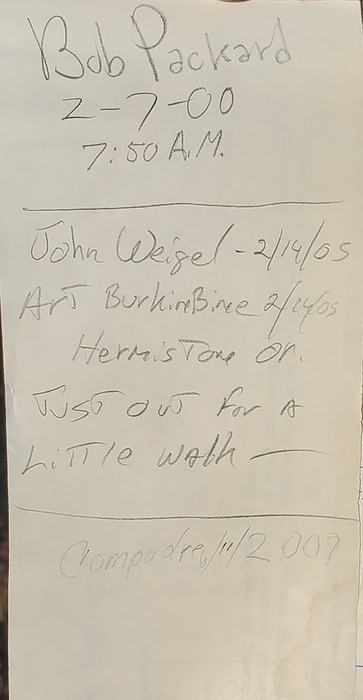 Bob Packard
2-7-00
7:50 A.M.
John Weigel - 2/14/05
Art BurkinBine 2/14/05
HermisTone or.
JUST OUT for A
LiTTle walk —
Compadre 11/2009